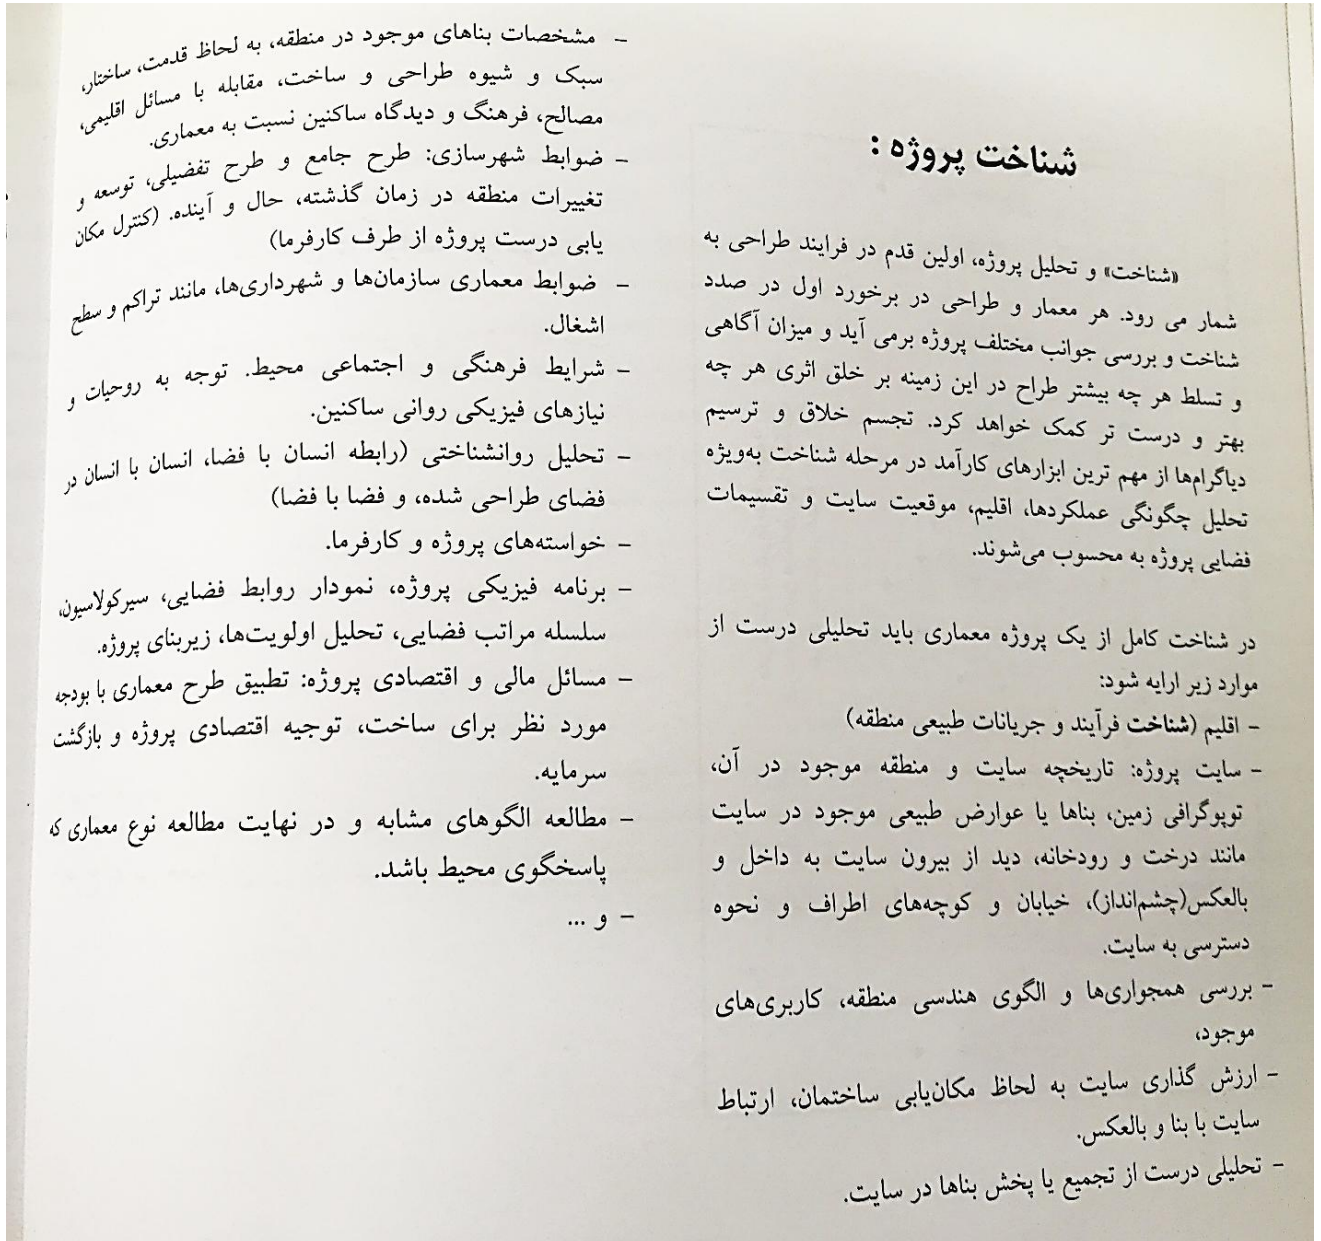 شناخت پروژه :
«شناخت» و تحلیل پروژه، اولین قدم در فرایند طراحی به
شمار می رود. هر معمار و طراحی در برخورد اول در صدد
شناخت و بررسی جوانب مختلف پروژه برمی آید و میزان آگاهی
و تسلط هر چه بیشتر طراح در این زمینه بر خلق اثری هر چه
بهتر و درست تر کمک خواهد کرد. تجسم خلاق و ترسیم
دیاگرام‌ها از مهم ترین ابزارهای کارآمد در مرحله شناخت به‌ویژه
تحلیل چگونگی عملکردها، اقلیم، موقعیت سایت و تقسیمات
فضایی پروژه به محسوب می‌شوند.
در شناخت کامل از یک پروژه معماری باید تحلیلی درست از
موارد زیر ارایه شود:
- اقلیم (شناخت فرآیند و جریانات طبیعی منطقه)
- سایت پروژه: تاریخچه سایت و منطقه موجود در آن،
توپوگرافی زمین، بناها یا عوارض طبیعی موجود در سایت
مانند درخت و رودخانه، دید از بیرون سایت به داخل و
بالعکس(چشم‌انداز)، خیابان و کوچه‌های اطراف و نحوه
دسترسی به سایت.
- بررسی همجواری‌ها و الگوی هندسی منطقه، کاربری‌های
موجود،
- ارزش گذاری سایت به لحاظ مکان‌یابی ساختمان، ارتباط
سایت با بنا و بالعکس.
- تحلیلی درست از تجمیع یا پخش بناها در سایت.
- مشخصات بناهای موجود در منطقه، به لحاظ قدمت، ساختار،
سبک و شیوه طراحی و ساخت، مقابله با مسائل اقلیمی،
مصالح، فرهنگ و دیدگاه ساکنین نسبت به معماری.
- ضوابط شهرسازی: طرح جامع و طرح تفضیلی، توسعه و
تغییرات منطقه در زمان گذشته، حال و آینده. (کنترل مکان
یابی درست پروژه از طرف کارفرما)
- ضوابط معماری سازمان‌ها و شهرداری‌ها، مانند تراکم و سطح
اشغال.
- شرایط فرهنگی و اجتماعی محیط. توجه به روحیات و
نیازهای فیزیکی روانی ساکنین.
- تحلیل روانشناختی (رابطه انسان با فضا، انسان با انسان در
فضای طراحی شده، و فضا با فضا)
- خواسته‌های پروژه و کارفرما.
- برنامه فیزیکی پروژه، نمودار روابط فضایی، سیرکولاسیون،
سلسله مراتب فضایی، تحلیل اولویت‌ها، زیربنای پروژه.
- مسائل مالی و اقتصادی پروژه: تطبیق طرح معماری با بودجه
مورد نظر برای ساخت، توجیه اقتصادی پروژه و بازگشت
سرمایه.
- مطالعه الگوهای مشابه و در نهایت مطالعه نوع معماری که
پاسخگوی محیط باشد.
- و ...